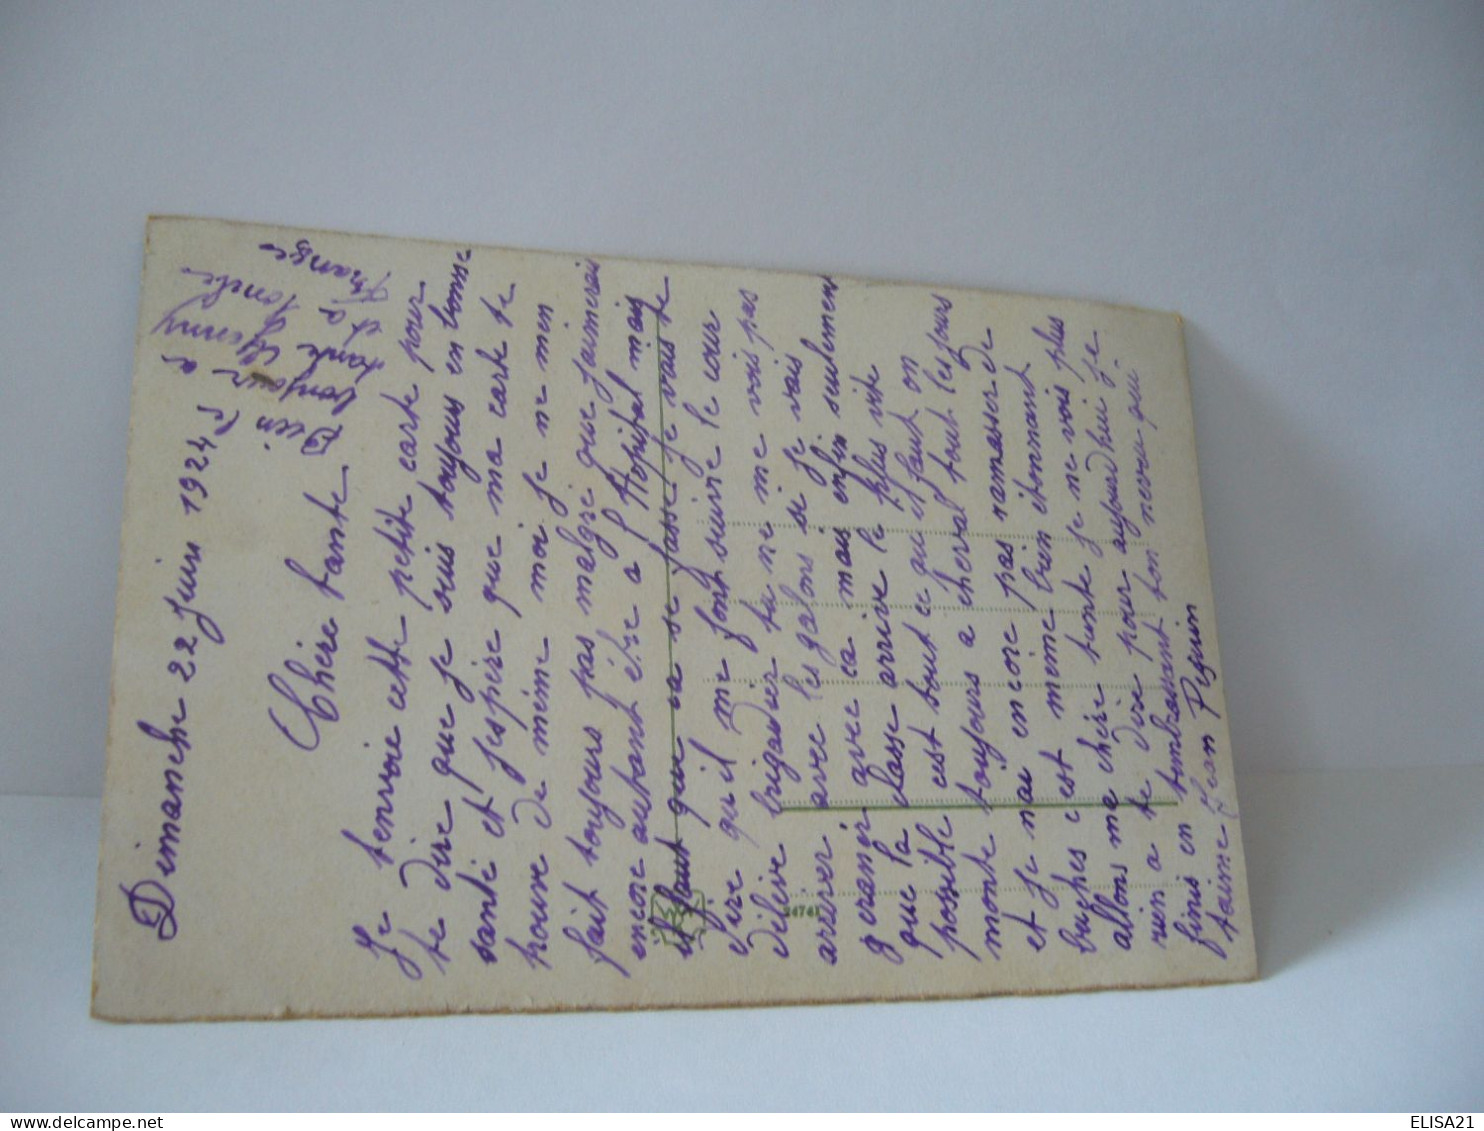 Dimanche 22 Juin 1924
Bien le
bonjour a
tante Jenny
et a
tonche
Chère tante
Je tenvoie cette petite carte pour
te dire que je suis toujous en bonne
santé et jespère que ma carte te
trouve de même moi je ne men
fait toujours pas malgré que jaimerais
encore autant être a l'Hopital mais
il faut que ca se fasse je vais te
dire qu'il me font suivre le cour
délève brigadier tu ne me vois pas
arriver avec les galons si je vais
avec ca mais enfin seulement
que la classe arrive le plus vite
possible c'est tout ce qu'il faut on
monte toujours a cheval tout les jours
et je nai encore pas ramasser de
buches c'est même bien étonnant
allons ma chère tante je ne vois plus
rien a te dire pour aujourd'hui je
finis en tembrassant ton neveu qui
taime Jean Pequin
24741
ELISA21